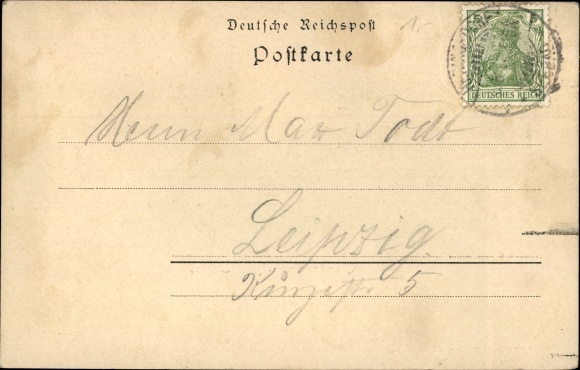 Deutsche Reichspost
1.-
Postkarte
DEUTSCHES REICH
Herrn Max Todt
Leipzig
5